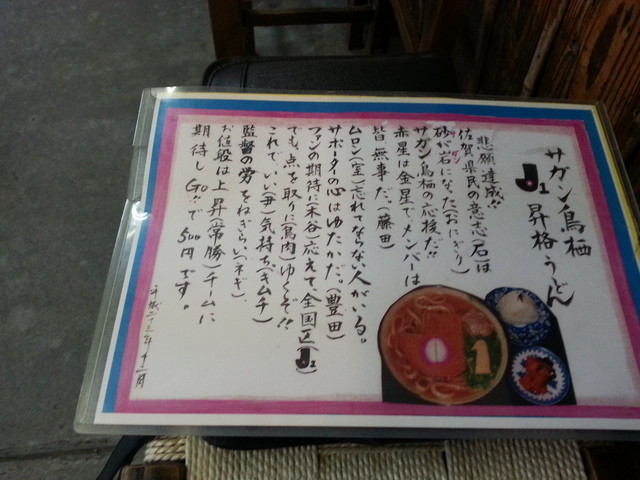 サガン鳥栖
J1昇格うどん
悲願達成!!
佐賀県民の意志(石)は
砂が岩になった(おにぎり)
サガン鳥栖の応援だ!!
赤星は金星で、メンバーは
皆無事だ。(藤田)
ムロン(室)忘れてならない人がいる。
サポータの心はゆたかだ。(豊田)
ファンの期待に(木谷)応えて、全国区(J1)
でも、点を取りに(鳥肉)ゆくぞ!!
これで、いい(丼)気持ち(キムチ)
監督の労をねぎらい(ネギ)、
お値段は上昇(常勝)チームに
期待しGo!!で500円です。
平成二十三年十二月